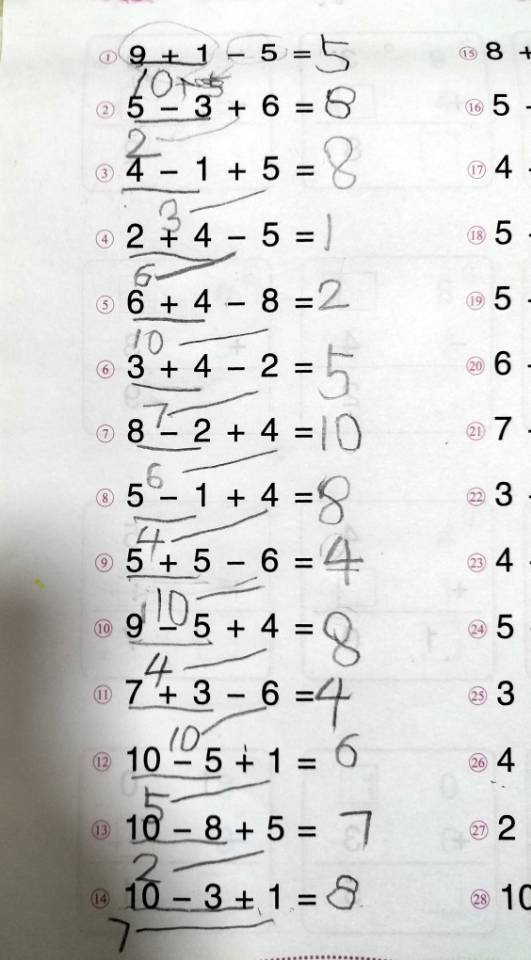 ① 9 + 1 - 5 = 5 ⑮ 8 +
10 + 5
② 5 - 3 + 6 = 8 ⑯ 5 -
2
③ 4 - 1 + 5 = 8 ⑰ 4 -
3
④ 2 + 4 - 5 = 1 ⑱ 5 -
6
⑤ 6 + 4 - 8 = 2 ⑲ 5 -
10
⑥ 3 + 4 - 2 = 5 ⑳ 6 -
7
⑦ 8 - 2 + 4 = 10 ㉑ 7 -
6
⑧ 5 - 1 + 4 = 8 ㉒ 3
4
⑨ 5 + 5 - 6 = 4 ㉓ 4 -
10
⑩ 9 - 5 + 4 = 8 ㉔ 5
4
⑪ 7 + 3 - 6 = 4 ㉕ 3
10
⑫ 10 - 5 + 1 = 6 ㉖ 4
5
⑬ 10 - 8 + 5 = 7 ㉗ 2
2
⑭ 10 - 3 + 1 = 8 ㉘ 10
7